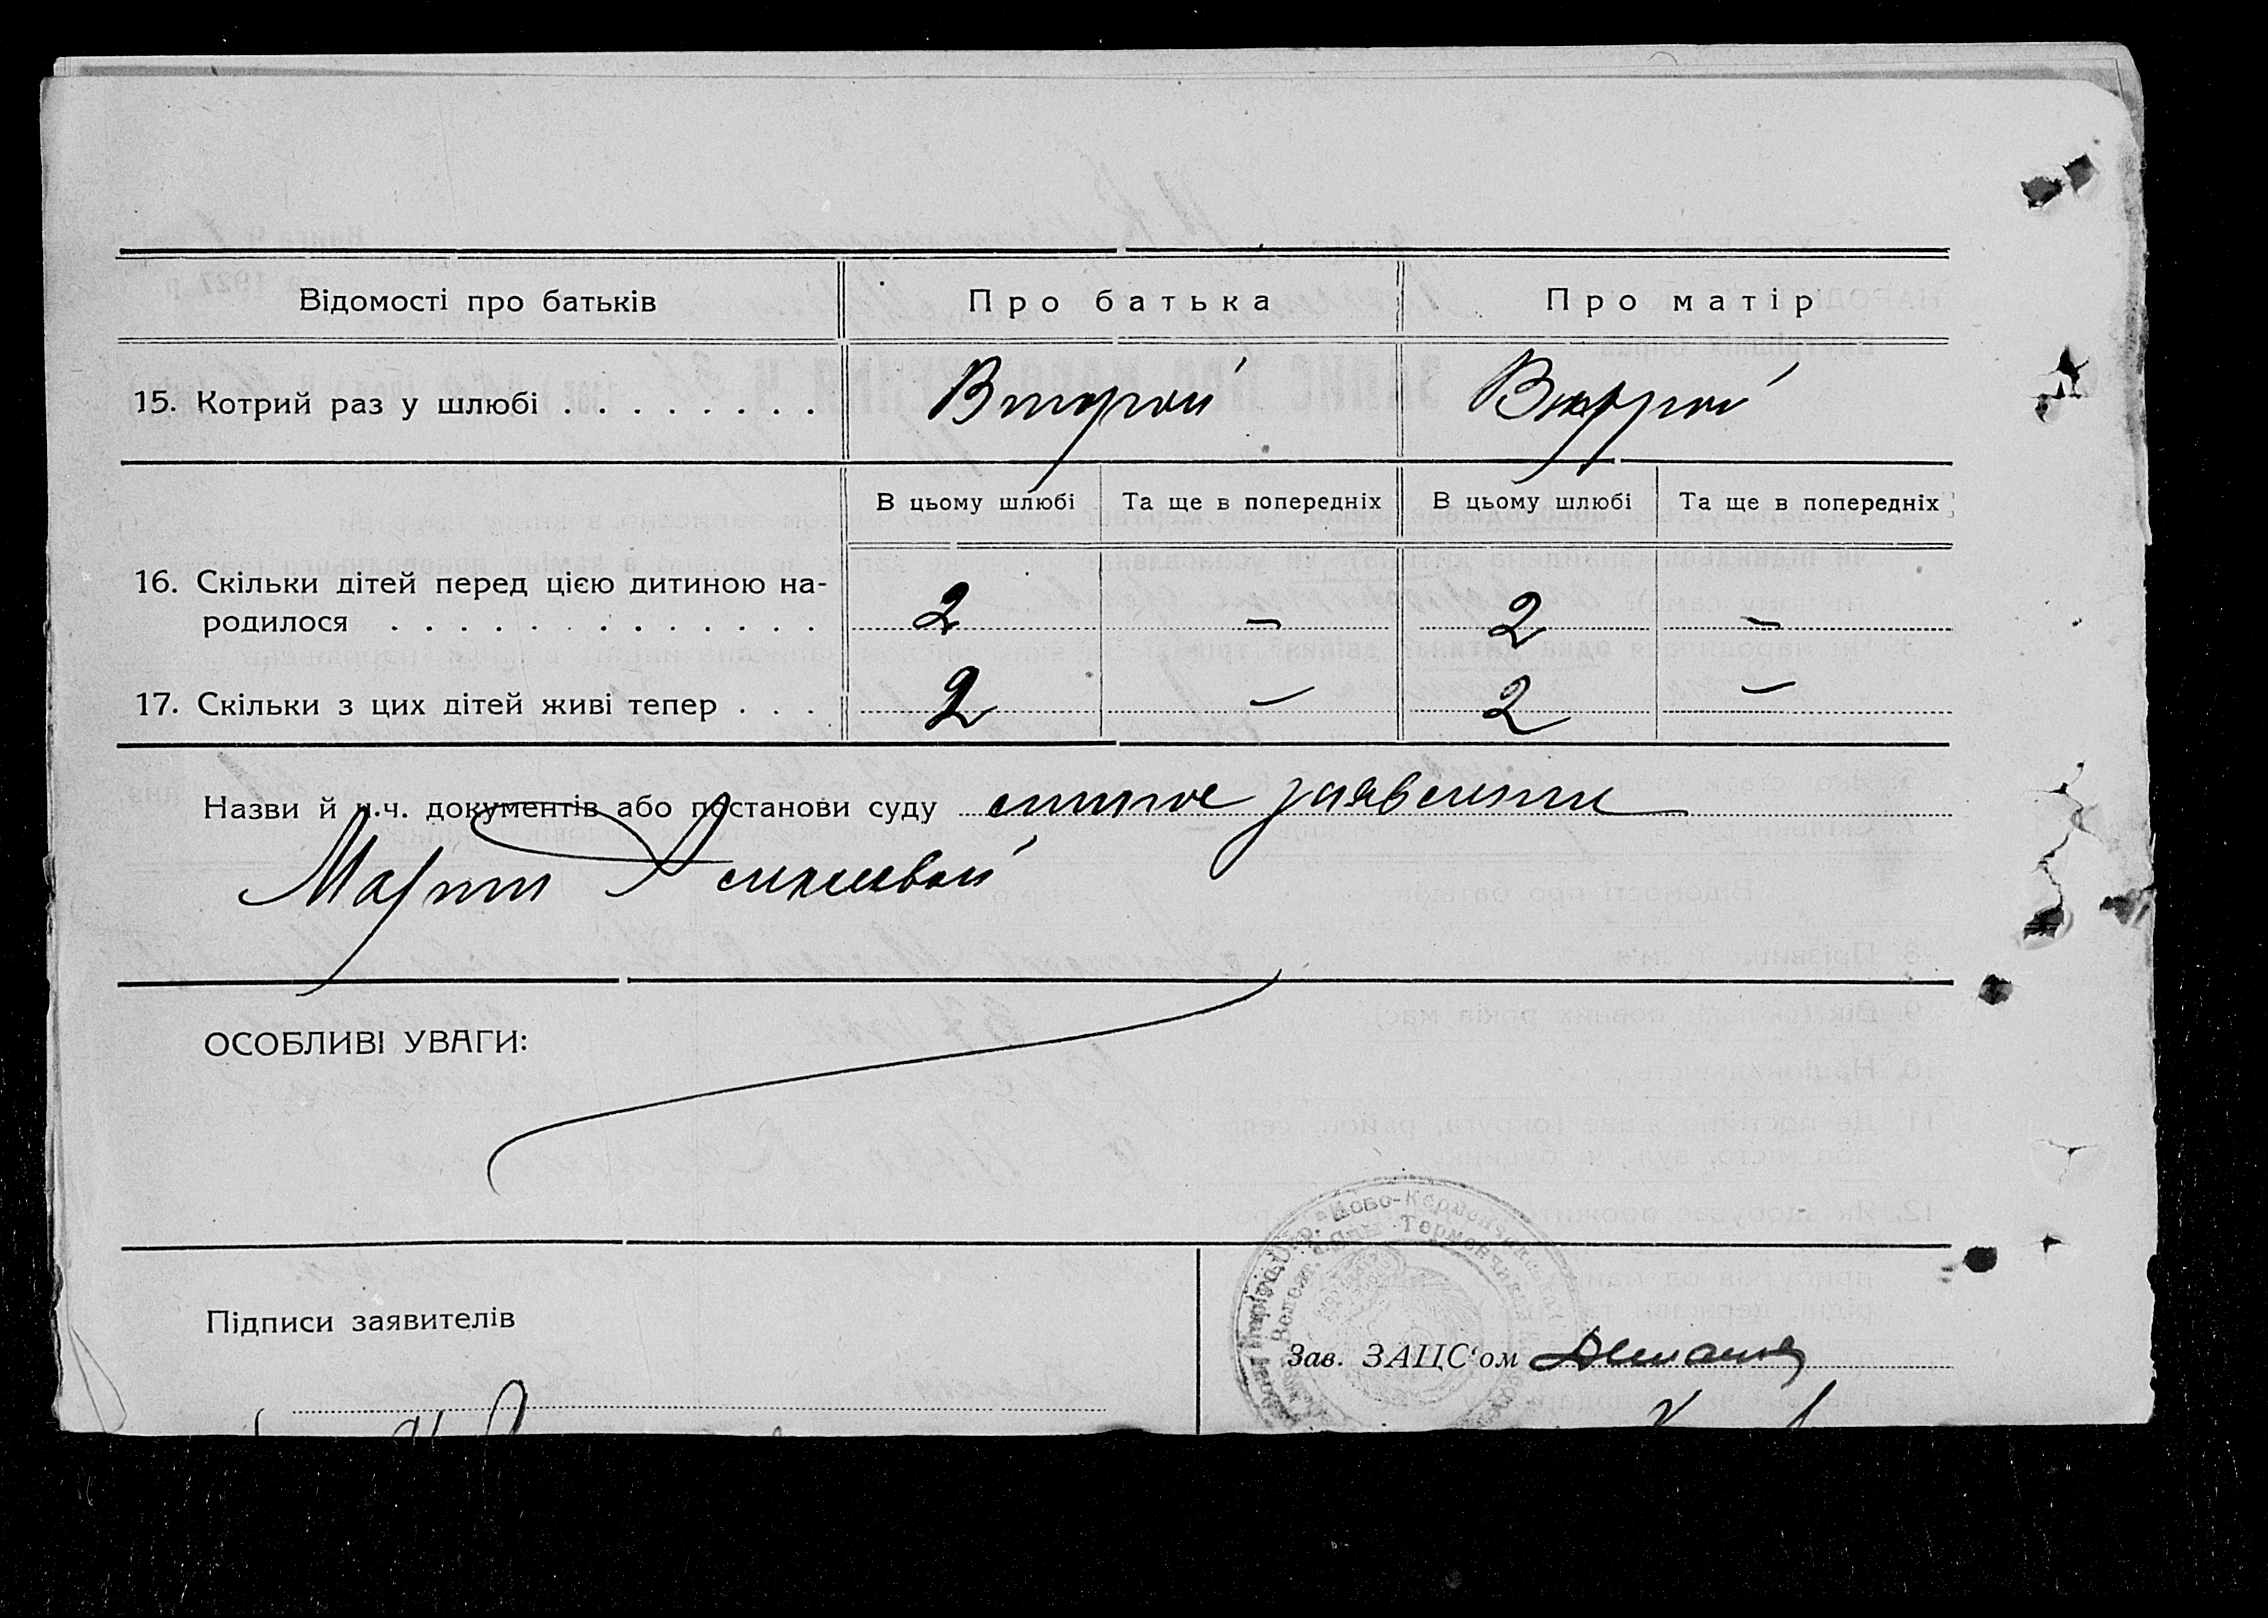 Відомості про батьків Про батька Про матір
15. Котрий раз у шлюбі . . . . . . . . Второй Второй
В цьому шлюбі Та ще в попередніх В цьому шлюбі Та ще в попередніх
16. Скільки дітей перед цією дитиною на-
родилося . . . . . . . . . . . . . 2 — 2 —
17. Скільки з цих дітей живі тепер . . . 2 — 2 —
Назви й ч.ч. документів або постанови суду заявление
Марии
ОСОБЛИВІ УВАГИ:
Підписи заявителів
Зав. ЗАЦС‘ом